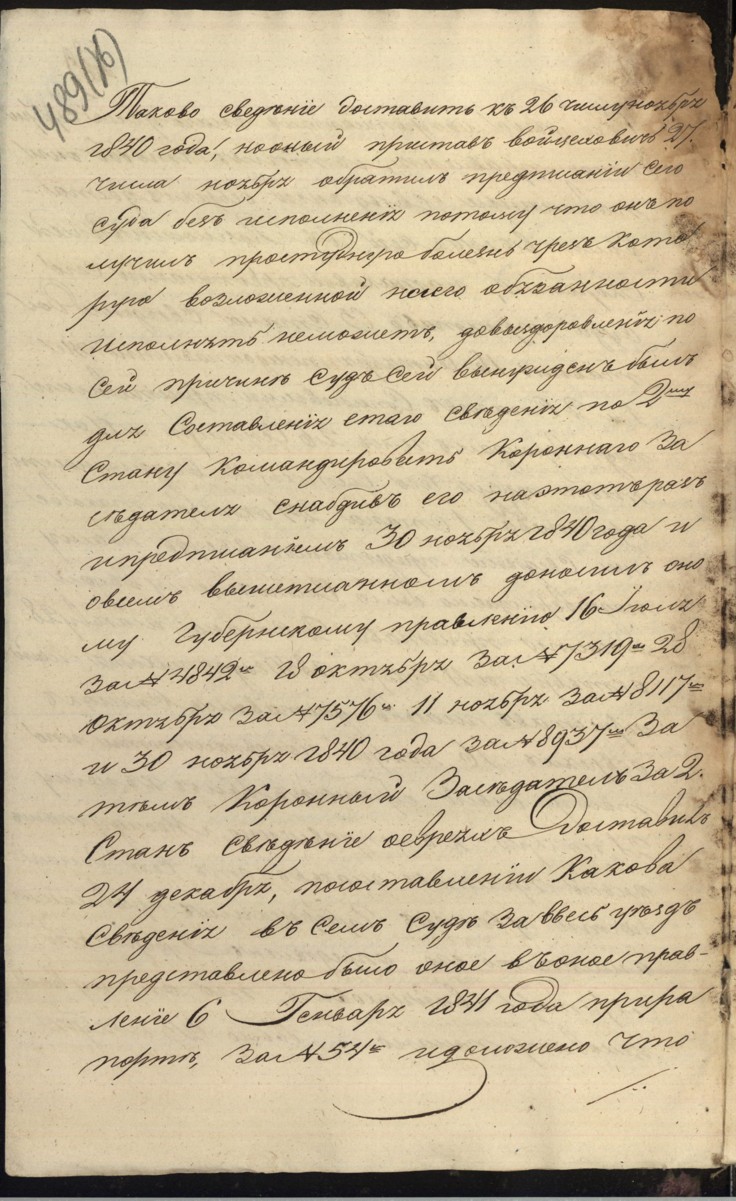 489(Ж)
Таково сведѣніе доставить къ 26 числу ноября
1840 года, но оный приставъ Войцеховичь 27.
числа ноября обратилъ предписаніи сего
суда безъ исполненія потому что онъ по
лучилъ простудную болезнь чрезъ кото
рую возложенной на него обязанности
исполнять неможетъ, довыздоровленія; по
сей причинѣ судъ сей вынужденъ былъ
для Составленія етаго свѣденія по 2му
Стану Командировать Короннаго За
сѣдателя снабдивъ его наэтотъ разъ
ипредписаніемъ 30 ноября 1840 года и
овсемъ вышеписанномъ доносилъ оно
му Губернскому правленію 16 Іюля
за № 4842м 18 октября за № 7319м 28
октября за № 7576м 11 ноября за № 8117м
и 30 ноября 1840 года за № 8937м За
тѣмъ Коронный Засѣдатель За 2.
Станъ свѣдѣніе оевреяхъ Доставилъ
24 декабря, посоставленіи Какова
Свѣденія въ Семъ Судѣ За ввесь уѣздъ
представлено было оное въ оное прав-
леніе 6 Генваря 1841 года прира
портѣ, За № 54м идоложено что